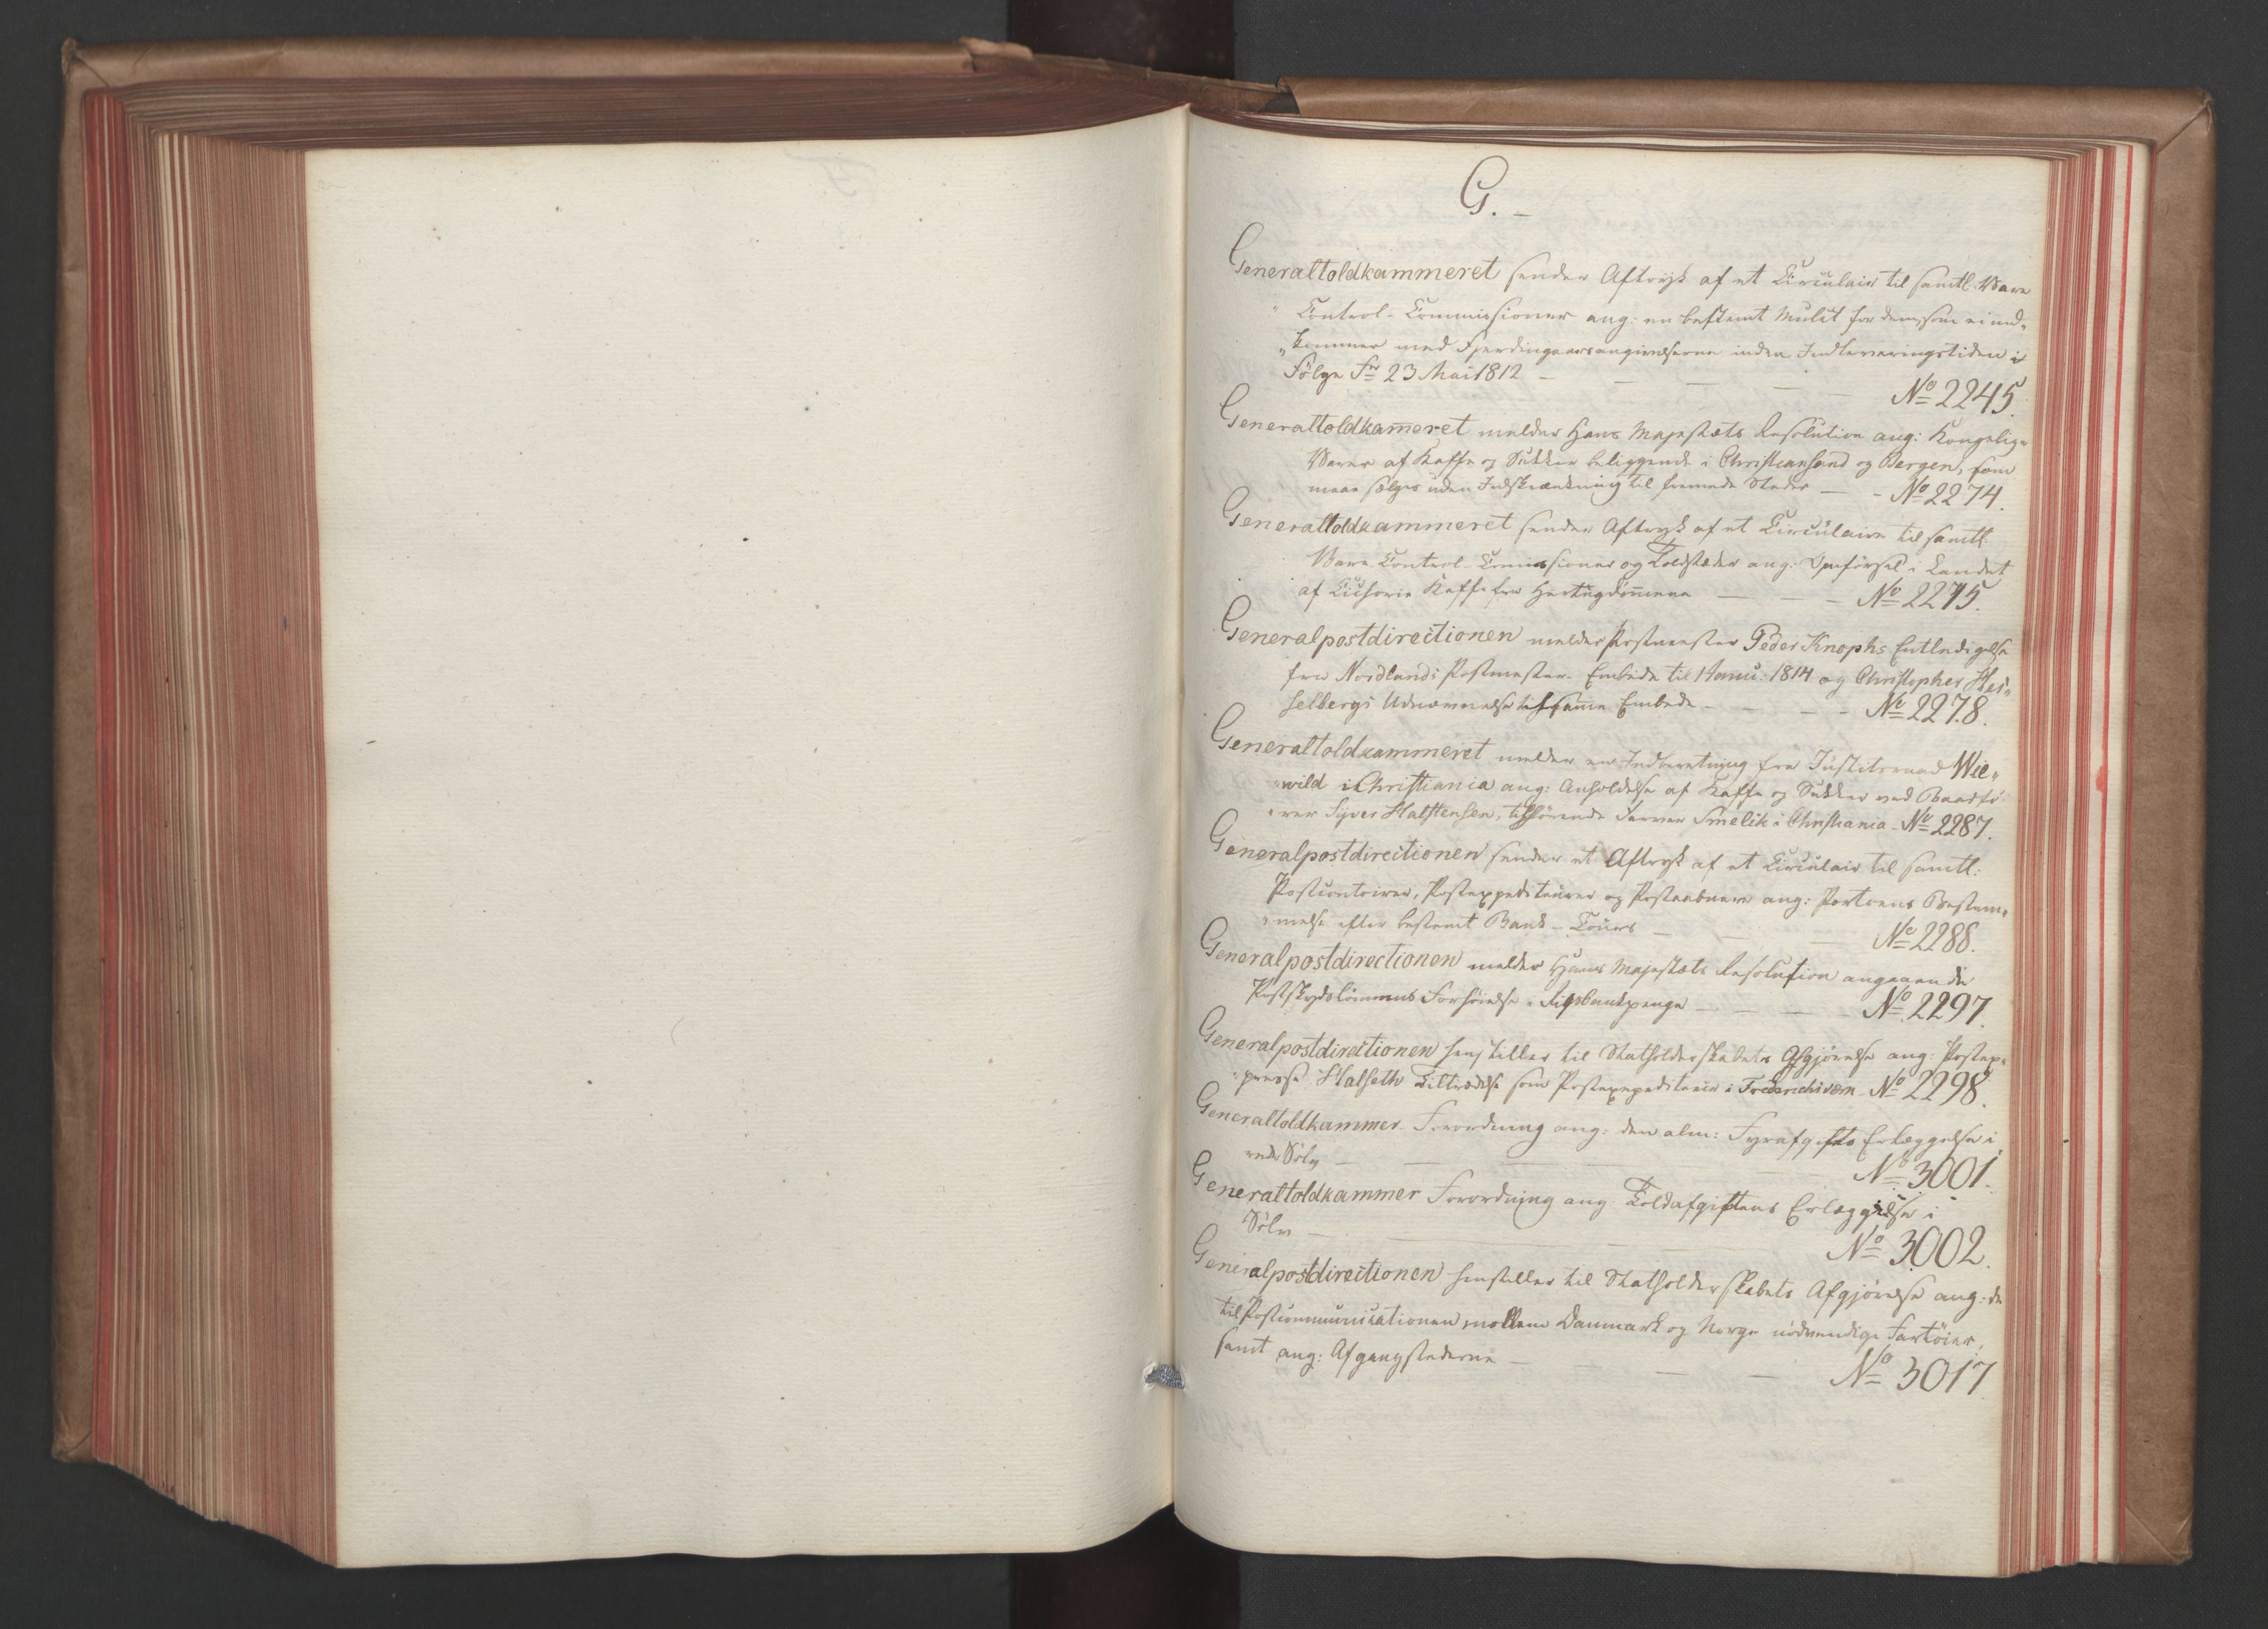 G. –
Generaltoldkammeret sender Aftryk af et Circulair til samtl. Vare
Control-Commissioner ang: en bestemt Mulct for dem, som ei ind-
kommer med Fjerdingaarsangivelserne inden Indleveringstiden i
Følge Fr 23 Mai 1812 – – – – – No 2245.
Generaltoldkam̄eret melder Hans Majestæts Resolution ang: Kongelige
Varer af Kaffe og Sukker beliggende i Christiansand og Bergen, som
maae sælges uden Indskrænkning til fremmede Steder – – No 2274.
Generaltoldkammeret sender Aftryk af et Circulaire til samtl.
Vare Control-Com̄issioner og Toldstæder ang: Indførsel i Landet
af Cichorie Kaffe fra Hertugdøm̄ene – – – No 2275.
Generalpostdirectionen melder Postmester Peder Knophs Entledigelse
fra Nordlands Postmester-Embede til 1 Janu: 1814 og Christopher Hes-
selbergs Udnævnelse til sam̄e Embede – – – No 2278.
Generaltoldkammeret melder en Indberetning fra Justitsraad Wie-
wild i Christiania ang: Anholdelse af Kaffe og Sukker ved Baadfø-
rer Syver Halstensen, tilhørende Farver Smelik i Christiania – No 2287.
Generalpostdirectionen sender et Aftryk af et Circulair til samtl:
Postcontoirer, Postexpediteurer og Postaabnere ang: Portoens Bestem-
melse efter bestemt Bank-Cours – – – No 2288.
Generalpostdirectionen melder Hans Majestæts Resolution angaaende
Postskydslønnens Forhøielse i Rigsbankpenge – – – No 2297.
Generalpostdirectionen henstiller til Statholderskabets Afgjørelse ang: Postex-
presse Halseth Tiltrædelse som Postexpediteur i Frederichsværn – No 2298.
Generaltoldkammer-Forordning ang: den alm: Fyrafgifts Erlæggelse i
rede Sølv – – – No 3001.
Generaltoldkammer Forordning ang. Toldafgiftens Erlæggelse i
Sølv – – – No 3002.
Generalpostdirectionen henstiller til Statholderskabets Afgjørelse ang: de
til Postcommunicationen mellem Danmark og Norge nødvendige Fartøier,
samt ang: Afgangstederne – – – No 3017